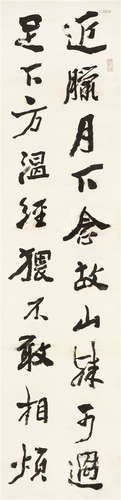 近臘月下念故山殊可過
足下方溫經猥不敢相煩